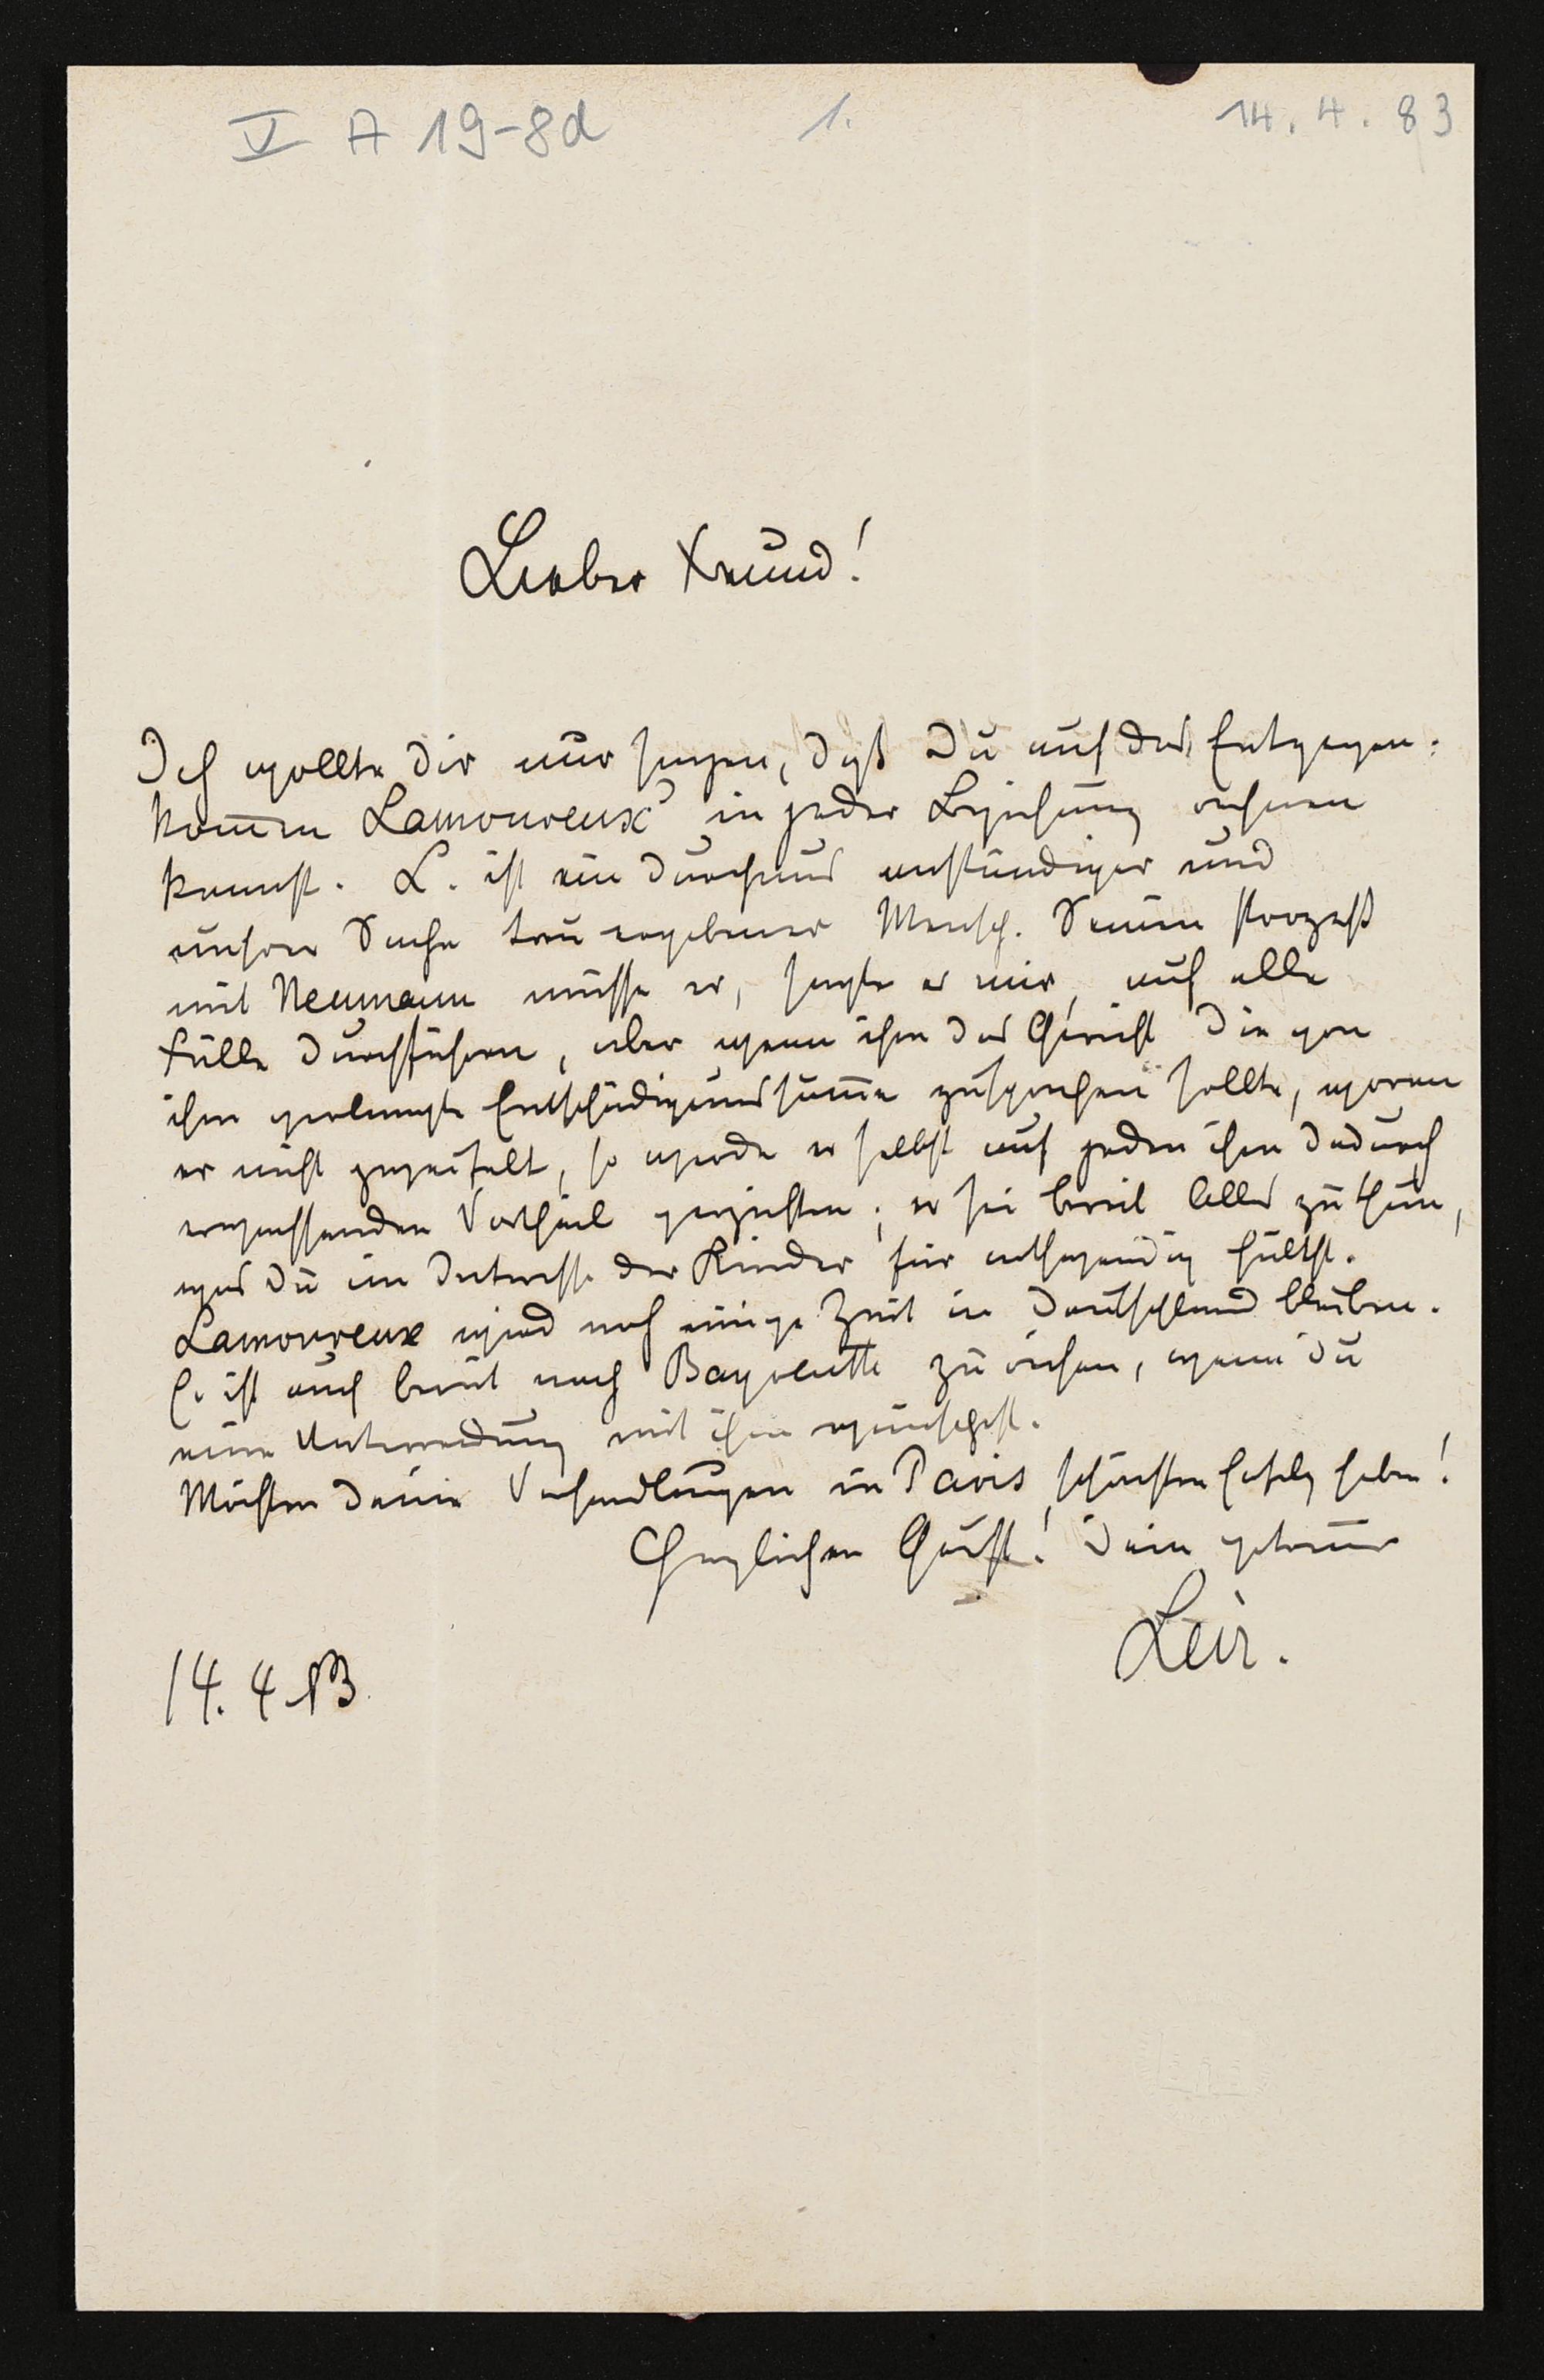 V A 19-8d 1. 14. 4. 83
Lieber Freund!
Ich wollte Dir nur sagen, daß Du auf das Entgegen-
kom̅en Lamoureux' in jeder Beziehung rechnen
kannst. L. ist ein durchaus anständiger und
unserer Sache treu ergebener Mensch. Seinen Prozeß
mit Neumann müsse er, sagte er mir, auf alle
Fälle durchführen, aber wenn ihm das Gericht die von
ihm verlangte Entschädigungssum̅e zusprechen sollte, woran
er nicht zweifelt, so werde er selbst auf jeden ihm dadurch
erwachsenden Vortheil verzichten; er sei bereit Alles zu thun,
was Du im Interesse der Kinder für nothwendig hältst.
Lamoureux wird noch einige Zeit in Deutschland bleiben.
Er ist auch bereit nach Bayreuth zu reisen, wenn Du
eine Unterredung mit ihm wünschest.
Möchten Deine Verhandlungen in Paris schönsten Erfolg haben!
Herzlichen Gruß! Dein getreuer
Levi.
14. 4. 83